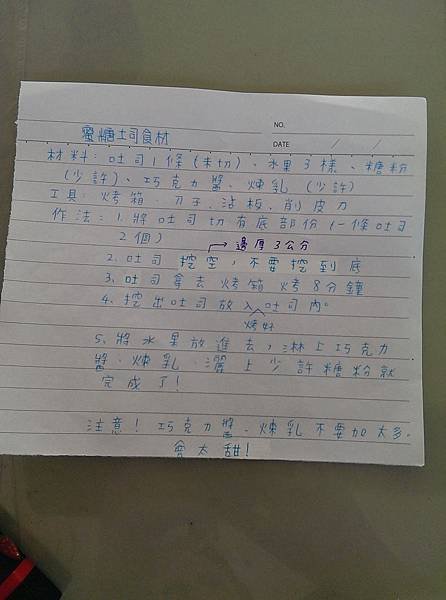 NO.
蜜糖土司食材
DATE / /
材料：吐司1條(未切)、水果3樣、糖粉
(少許)、巧克力醬、煉乳(少許)
工具：烤箱、刀子、沾板、削皮刀
作法：1.將吐司切有底部份(一條吐司
2個)
→邊厚3公分
2.吐司挖空，不要挖到底
3.吐司拿去烤箱烤8分鐘
4.挖出吐司放入吐司內。
烤好
5.將水果放進去，淋上巧克力
醬、煉乳、灑上少許糖粉就
完成了!
注意!巧克力醬、煉乳不要加太多。
會太甜!